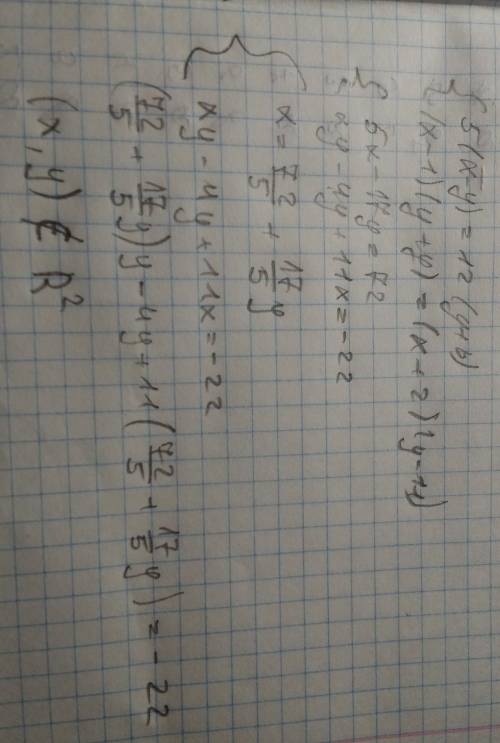 { 5(x-y)=12(y+6)
(x-1)(y+y)=(x+2)(y-11)
{ 5x-17y=72
xy-4y+11x=-22
{ x=72/5+17/5y
xy-4y+11x=-22
(72/5+17/5y)y-4y+11(72/5+17/5y)=-22
(x,y)∉R²